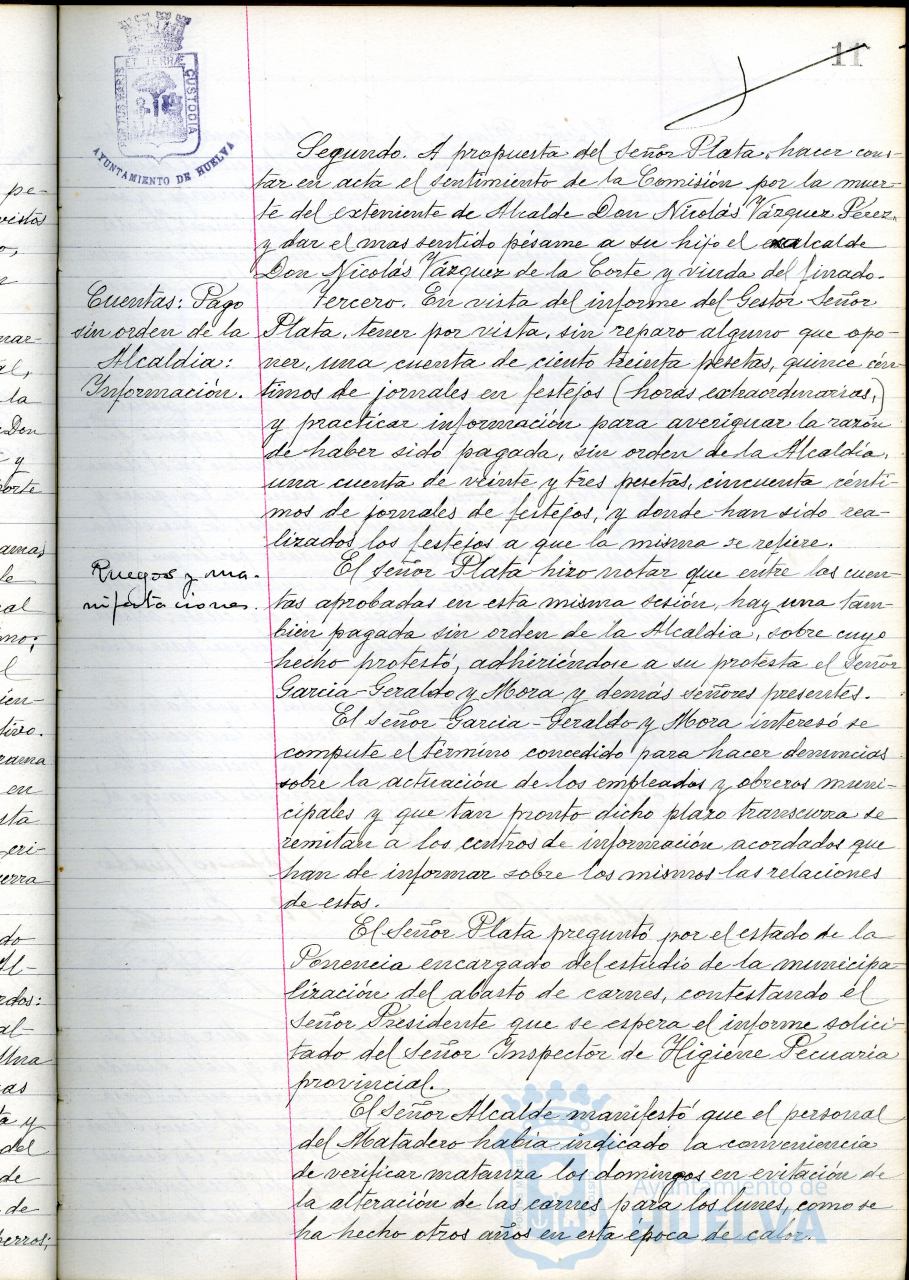 11
PORTUS MARIS ET TERRÆ CUSTODIA
AYUNTAMIENTO DE HUELVA
Segundo. A propuesta del Señor Plata, hacer cons-
tar en acta el sentimiento de la Comisión por la muer-
te del exteniente de Alcalde Don Nicolás Vázquez Pérez,
y dar el mas sentido pésame a su hijo el exalcalde
Don Nicolás Vázquez de la Corte y viuda del finado.
Cuentas: Pago
sin orden de la
Alcaldia:
Información.
Tercero. En vista del informe del Gestor Señor
Plata, tener por vista, sin reparo alguno que opo-
ner, una cuenta de ciento treinta pesetas, quince cén-
timos de jornales en festejos (horas extraordinarias,)
y practicar información para averiguar la razón
de haber sido pagada, sin orden de la Alcaldía,
una cuenta de veinte y tres pesetas, cincuenta cénti-
mos de jornales de festejos, y donde han sido rea-
lizados los festejos a que la misma se refiere.
Ruegos y ma-
nifestaciones.
El Señor Plata hizo notar que entre las cuen-
tas aprobadas en esta misma sesión, hay una tam-
bién pagada sin orden de la Alcaldia, sobre cuyo
hecho protestó, adhiriéndose a su protesta el Señor
Garcia-Geraldo y Mora y demás señores presentes.
El Señor Garcia-Geraldo y Mora interesó se
compute el término concedido para hacer denuncias
sobre la actuación de los empleados y obreros muni-
cipales y que tan pronto dicho plazo transcurra se
remitan a los centros de información acordados que
han de informar sobre los mismos las relaciones
de estos.
El Señor Plata preguntó por el estado de la
Ponencia encargado del estudio de la municipa-
lización del abasto de carnes, contestando el
Señor Presidente que se espera el informe solici-
tado del Señor Inspector de Higiene Pecuaria
provincial.
El Señor Alcalde manifestó que el personal
del Matadero había indicado la conveniencia
de verificar matanza los domingos en evitación de
la alteración de las carnes para los lunes, como se
ha hecho otros años en esta época de calor.
Ayuntamiento de
HUELVA